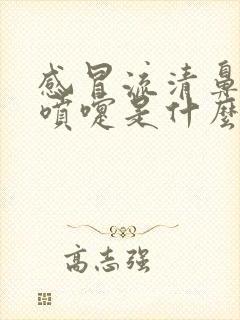 感冒流清鼻
噴嚏是什麼
高志强